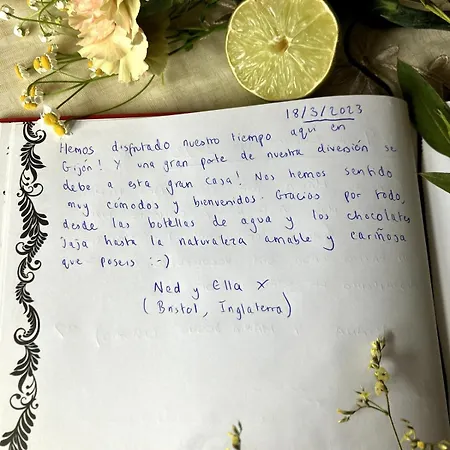 18/3/2023
Hemos disfrutado nuestro tiempo aquí en
Gijón! Y una gran parte de nuestra diversión se
debe a esta gran casa! Nos hemos sentido
muy cómodos y bienvenidos. Gracias por todo,
desde las botellas de agua y los chocolates
jaja hasta la naturaleza amable y cariñosa
que poseis :-)
Ned y Ella X
(Bristol, Inglaterra)